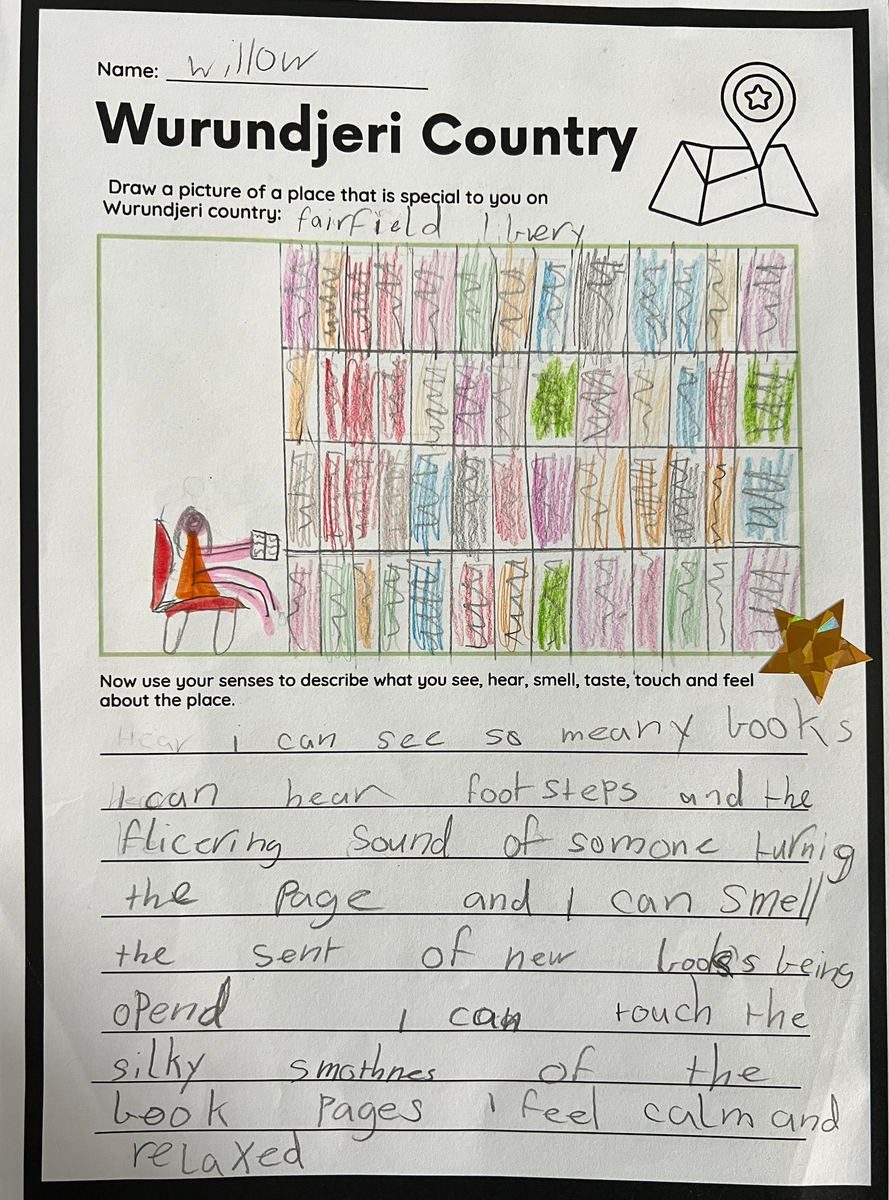 Name: Willow
Wurundjeri Country
Draw a picture of a place that is special to you on
Wurundjeri country: fairfield librery
Now use your senses to describe what you see, hear, smell, taste, touch and feel
about the place.
i can see so meany books
I can hear footsteps and the
flicering sound of somone turnig
the page and I can smell
the sent of new books being
opend I can touch the
silky smothnes of the
book pages i feel calm and
relaxed